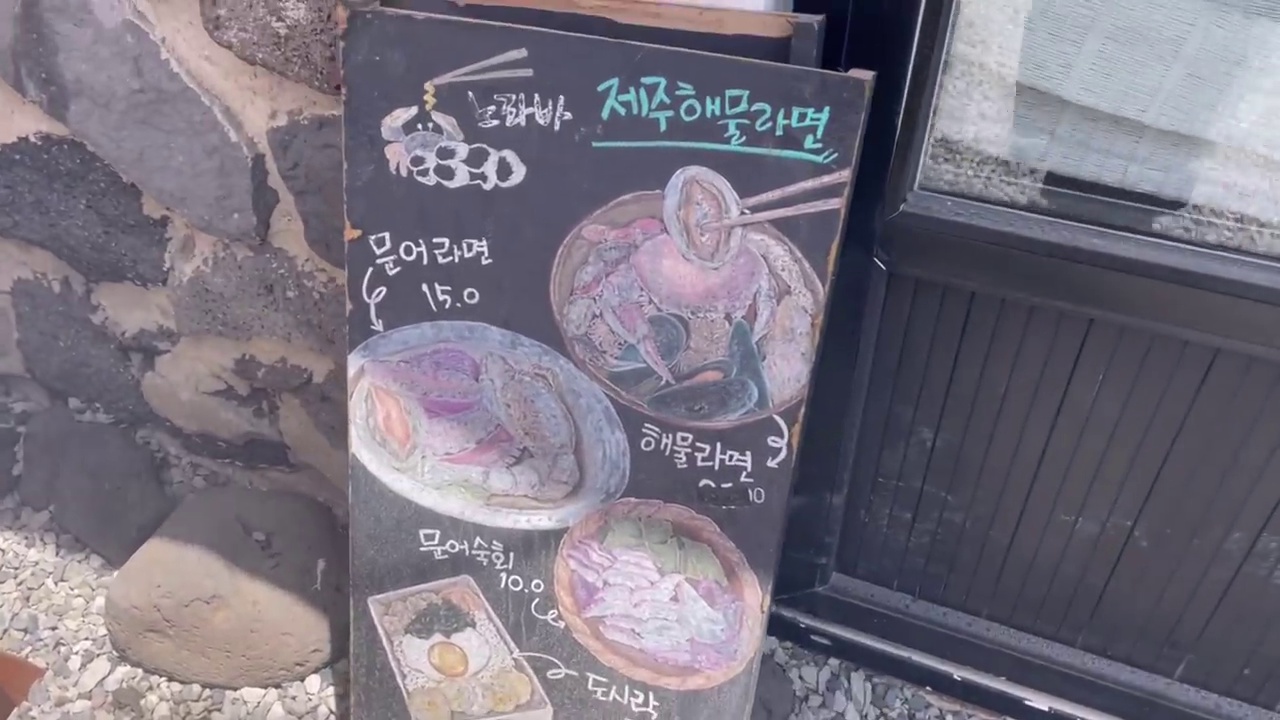 노라바 제주해물라면
문어라면
15.0
해물라면
10
문어숙회
10.0
도시락